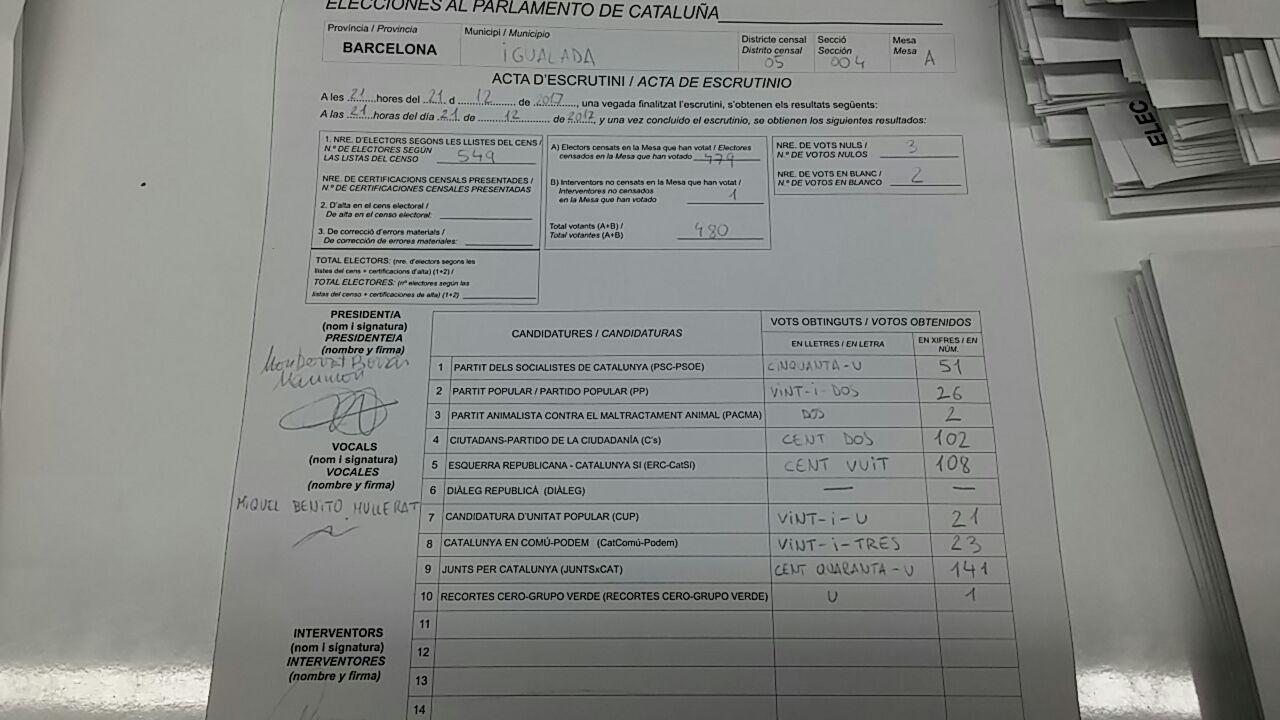 ELECCIONES AL PARLAMENTO DE CATALUÑA
Província / Provincia
BARCELONA
Municipi / Municipio
IGUALADA
Districte censal
Distrito censal
05
Secció
Sección
004
Mesa
Mesa
A
ACTA D'ESCRUTINI / ACTA DE ESCRUTINIO
A les 21 hores del 21 d 12 de 2017, una vegada finalitzat l'escrutini, s'obtenen els resultats següents:
A las 21 horas del día 21 de 12 de 2017 y una vez concluido el escrutinio, se obtienen los siguientes resultados:
1. NRE. D'ELECTORS SEGONS LES LLISTES DEL CENS /
N.º DE ELECTORES SEGÚN
LAS LISTAS DEL CENSO 549
NRE. DE CERTIFICACIONS CENSALS PRESENTADES /
N.º DE CERTIFICACIONES CENSALES PRESENTADAS
2. D'alta en el cens electoral /
De alta en el censo electoral:
3. De correcció d'errors materials /
De corrección de errores materiales:
TOTAL ELECTORS: (nre. d'electors segons les
llistes del cens + certificacions d'alta) (1+2) /
TOTAL ELECTORES: (nº electores según las
listas del censo + certificaciones de alta) (1+2)
A) Electors censats en la Mesa que han votat / Electores
censados en la Mesa que han votado 479
B) Interventors no censats en la Mesa que han votat /
Interventores no censados
en la Mesa que han votado 1
Total votants (A+B) /
Total votantes (A+B) 480
NRE. DE VOTS NULS /
N.º DE VOTOS NULOS 3
NRE. DE VOTS EN BLANC /
N.º DE VOTOS EN BLANCO 2
PRESIDENT/A
(nom i signatura)
PRESIDENTE/A
(nombre y firma)
VOCALS
(nom i signatura)
VOCALES
(nombre y firma)
MIQUEL BENITO MULLERAT
INTERVENTORS
(nom i signatura)
INTERVENTORES
(nombre y firma)
CANDIDATURES / CANDIDATURAS
VOTS OBTINGUTS / VOTOS OBTENIDOS
EN LLETRES / EN LETRA
EN XIFRES / EN
NÚM.
1 PARTIT DELS SOCIALISTES DE CATALUNYA (PSC-PSOE) CINQUANTA-U 51
2 PARTIT POPULAR / PARTIDO POPULAR (PP) VINT-i-DOS 26
3 PARTIT ANIMALISTA CONTRA EL MALTRACTAMENT ANIMAL (PACMA) DOS 2
4 CIUTADANS-PARTIDO DE LA CIUDADANÍA (C's) CENT DOS 102
5 ESQUERRA REPUBLICANA - CATALUNYA SÍ (ERC-CatSí) CENT VUIT 108
6 DIÀLEG REPUBLICÀ (DIÀLEG) — —
7 CANDIDATURA D'UNITAT POPULAR (CUP) VINT-i-U 21
8 CATALUNYA EN COMÚ-PODEM (CatComú-Podem) VINT-i-TRES 23
9 JUNTS PER CATALUNYA (JUNTSxCAT) CENT QUARANTA-U 141
10 RECORTES CERO-GRUPO VERDE (RECORTES CERO-GRUPO VERDE) U 1
11
12
13
14
ELEC